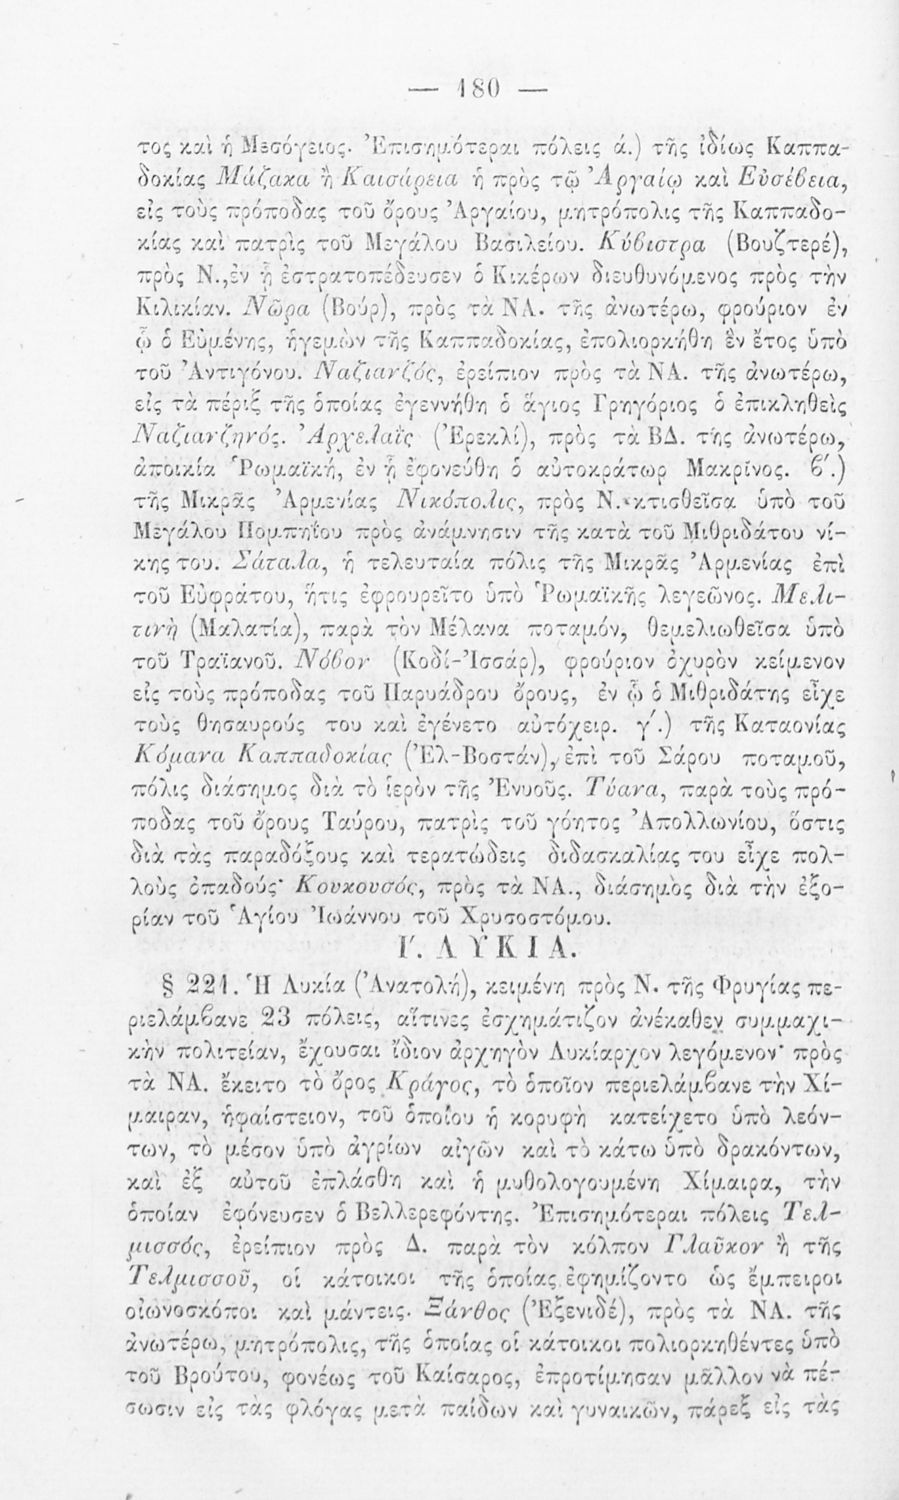 — 180 —
τος καὶ ἡ Μεσόγειος. Ἐπισημότεραι πόλεις ά.) τῆς ἰδίως Καππα-
δοκίας Μάζακα ἢ Καισάρεια ἡ πρὸς τῷ Ἀργαίῳ καὶ Εὐσέβεια,
εἰς τοὺς πρόποδας τοῦ ὄρους Ἀργαίου, μητρόπολις τῆς Καππαδο-
κίας καὶ πατρὶς τοῦ Μεγάλου Βασιλείου. Κύβιστρα (Βουζτερέ),
πρὸς Ν.,ἐν ᾗ ἐστρατοπέδευσεν ὁ Κικέρων διευθυνόμενος πρὸς τὴν
Κιλικίαν. Νῶρα (Βούρ), πρὸς τὰ ΝΑ. τῆς ἀνωτέρω, φρούριον ἐν
ᾧ ὁ Εὐμένης, ἡγεμὼν τῆς Καππαδοκίας, ἐπολιορκήθη ἓν ἔτος ὑπὸ
τοῦ Ἀντιγόνου. Ναζιανζός, ἐρείπιον πρὸς τὰ ΝΑ. τῆς ἀνωτέρω,
εἰς τὰ πέριξ τῆς ὁποίας ἐγεννήθη ὁ ἅγιος Γρηγόριος ὁ ἐπικληθεὶς
Ναζιανζηνός. Ἀρχελαῒς (Ἐρεκλί), πρὸς τὰ ΒΔ. τῆς ἀνωτέρω,
ἀποικία Ῥωμαϊκή, ἐν ᾗ ἐφονεύθη ὁ αὐτοκράτωρ Μακρῖνος. ϐ΄.)
τῆς Μικρᾶς Ἀρμενίας Νικόπολις, πρὸς Ν. κτισθεῖσα ὑπὸ τοῦ
Μεγάλου Πομπηΐου πρὸς ἀνάμνησιν τῆς κατὰ τοῦ Μιθριδάτου νί-
κης του. Σάταλα, ἡ τελευταία πόλις τῆς Μικρᾶς Ἀρμενίας ἐπὶ
τοῦ Εὐφράτου, ἥτις ἐφρουρεῖτο ὑπὸ Ῥωμαϊκῆς λεγεῶνος. Μελι-
τινὴ (Μαλατία), παρὰ τὸν Μέλανα ποταμόν, θεμελιωθεῖσα ὑπὸ
τοῦ Τραϊανοῦ. Νόβον (Κοδί-Ἰσσάρ), φρούριον ὀχυρὸν κείμενον
εἰς τοὺς πρόποδας τοῦ Παρυάδρου ὄρους, ἐν ᾧ ὁ Μιθριδάτης εἶχε
τοὺς θησαυρούς του καὶ ἐγένετο αὐτόχειρ. γ΄.) τῆς Καταονίας
Κόμανα Καππαδοκίας (Ἐλ-Βοστάν), ἐπὶ τοῦ Σάρου ποταμοῦ,
πόλις διάσημος διὰ τὸ ἱερὸν τῆς Ἐνυοῦς. Τύανα, παρὰ τοὺς πρό-
ποδας τοῦ ὄρους Ταύρου, πατρὶς τοῦ γόητος Ἀπολλωνίου, ὅστις
διὰ τὰς παραδόξους καὶ τερατώδεις διδασκαλίας του εἶχε πολ-
λοὺς ὀπαδούς· Κουκουσός, πρὸς τὰ ΝΑ., διάσημος διὰ τὴν ἐξο-
ρίαν τοῦ Ἁγίου Ἰωάννου τοῦ Χρυσοστόμου.
Γ. ΛΥΚΙΑ.
§ 221. Ἡ Λυκία (Ἀνατολή), κειμένη πρὸς Ν. τῆς Φρυγίας πε-
ριελάμβανε 23 πόλεις, αἵτινες ἐσχημάτιζον ἀνέκαθεν συμμαχι-
κὴν πολιτείαν, ἔχουσαι ἴδιον ἀρχηγὸν Λυκίαρχον λεγόμενον· πρὸς
τὰ ΝΑ. ἔκειτο τὸ ὄρος Κράγος, τὸ ὁποῖον περιελάμβανε τὴν Χί-
μαιραν, ἡφαίστειον, τοῦ ὁποίου ἡ κορυφὴ κατείχετο ὑπὸ λεόν-
των, τὸ μέσον ὑπὸ ἀγρίων αἰγῶν καὶ τὸ κάτω ὑπὸ δρακόντων,
καὶ ἐξ αὐτοῦ ἐπλάσθη καὶ ἡ μυθολογουμένη Χίμαιρα, τὴν
ὁποίαν ἐφόνευσεν ὁ Βελλερεφόντης. Ἐπισημότεραι πόλεις Τελ-
μισσός, ἐρείπιον πρὸς Δ. παρὰ τὸν κόλπον Γλαῦκον ἢ τῆς
Τελμισσοῦ, οἱ κάτοικοι τῆς ὁποίας ἐφημίζοντο ὡς ἔμπειροι
οἰωνοσκόποι καὶ μάντεις. Ξάνθος (Ἐξενιδέ), πρὸς τὰ ΝΑ. τῆς
ἀνωτέρω, μητρόπολις, τῆς ὁποίας οἱ κάτοικοι πολιορκηθέντες ὑπὸ
τοῦ Βρούτου, φονέως τοῦ Καίσαρος, ἐπροτίμησαν μᾶλλον νὰ πέ-
σωσιν εἰς τὰς φλόγας μετὰ παίδων καὶ γυναικῶν, πάρεξ εἰς τὰς